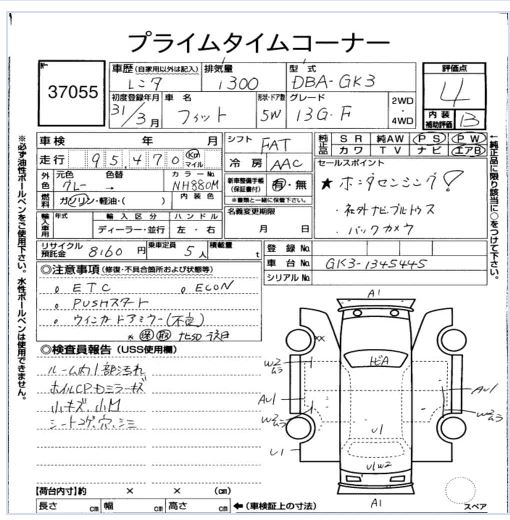 プライムタイムコーナー
37055
車歴 (自家用以外は記入) レンタ
排気量 1300
型式 DBA-GK3
評価点 4
内装補助評価 B
初度登録年月 31/3月
車名 フィット
形状・ドア数 5W
グレード 13G・F
2WD・4WD
車検 年 月
シフト FAT
純正品 SR 純AW PS PW
革 カワ TV ナビ エアB
走行 95,470 Km マイル
冷房 AAC
外色 元色 グレー 色替
カラーNo. NH880M
内装色
燃料 ガソリン・軽油・( )
新車整備手帳(保証書付) 有・無
※書類と一緒に保管下さい。
名義変更期限 月 日
セールスポイント
★ホンダセンシング!
・社外ナビブルトゥス
・バックカメラ
輸入車用 年式 輸入区分 ハンドル
ディーラー・並行 左・右
リサイクル預託金 8160円
乗車定員 5人
積載量 t
登録No.
車台No. GK3-1345445
シリアルNo.
◎注意事項(修復・不具合箇所および状態等)
。ETC 。ECON
。PUSHスタート
。ウインカードアミラー(不良)
◎検査員報告(USS使用欄)
ルーム内1部汚れ
ホイルCPドミラーキズ
小キズ、小凹
シートコゲ穴、シミ
【荷台内寸】約 × × (cm)
長さ cm 幅 cm 高さ cm ←(車検証上の寸法)
※必ず油性ボールペンをご使用下さい。水性ボールペンは使用できません。
←純正品に限り該当に○をつけて下さい。
A1
XX
W2ムラ
W2ムラ
ロA
AU1
AU1
W2ムラ
W2ムラ
U1
U1
U1W2
A1
スペア